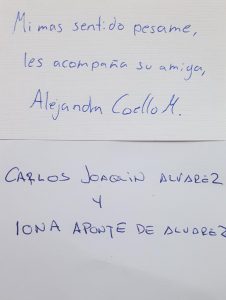 Mi mas sentido pesame,
les acompaña su amiga,
Alejandra Coello M.
CARLOS JOAQUIN ALVAREZ
Y
IONA APONTE DE ALVAREZ